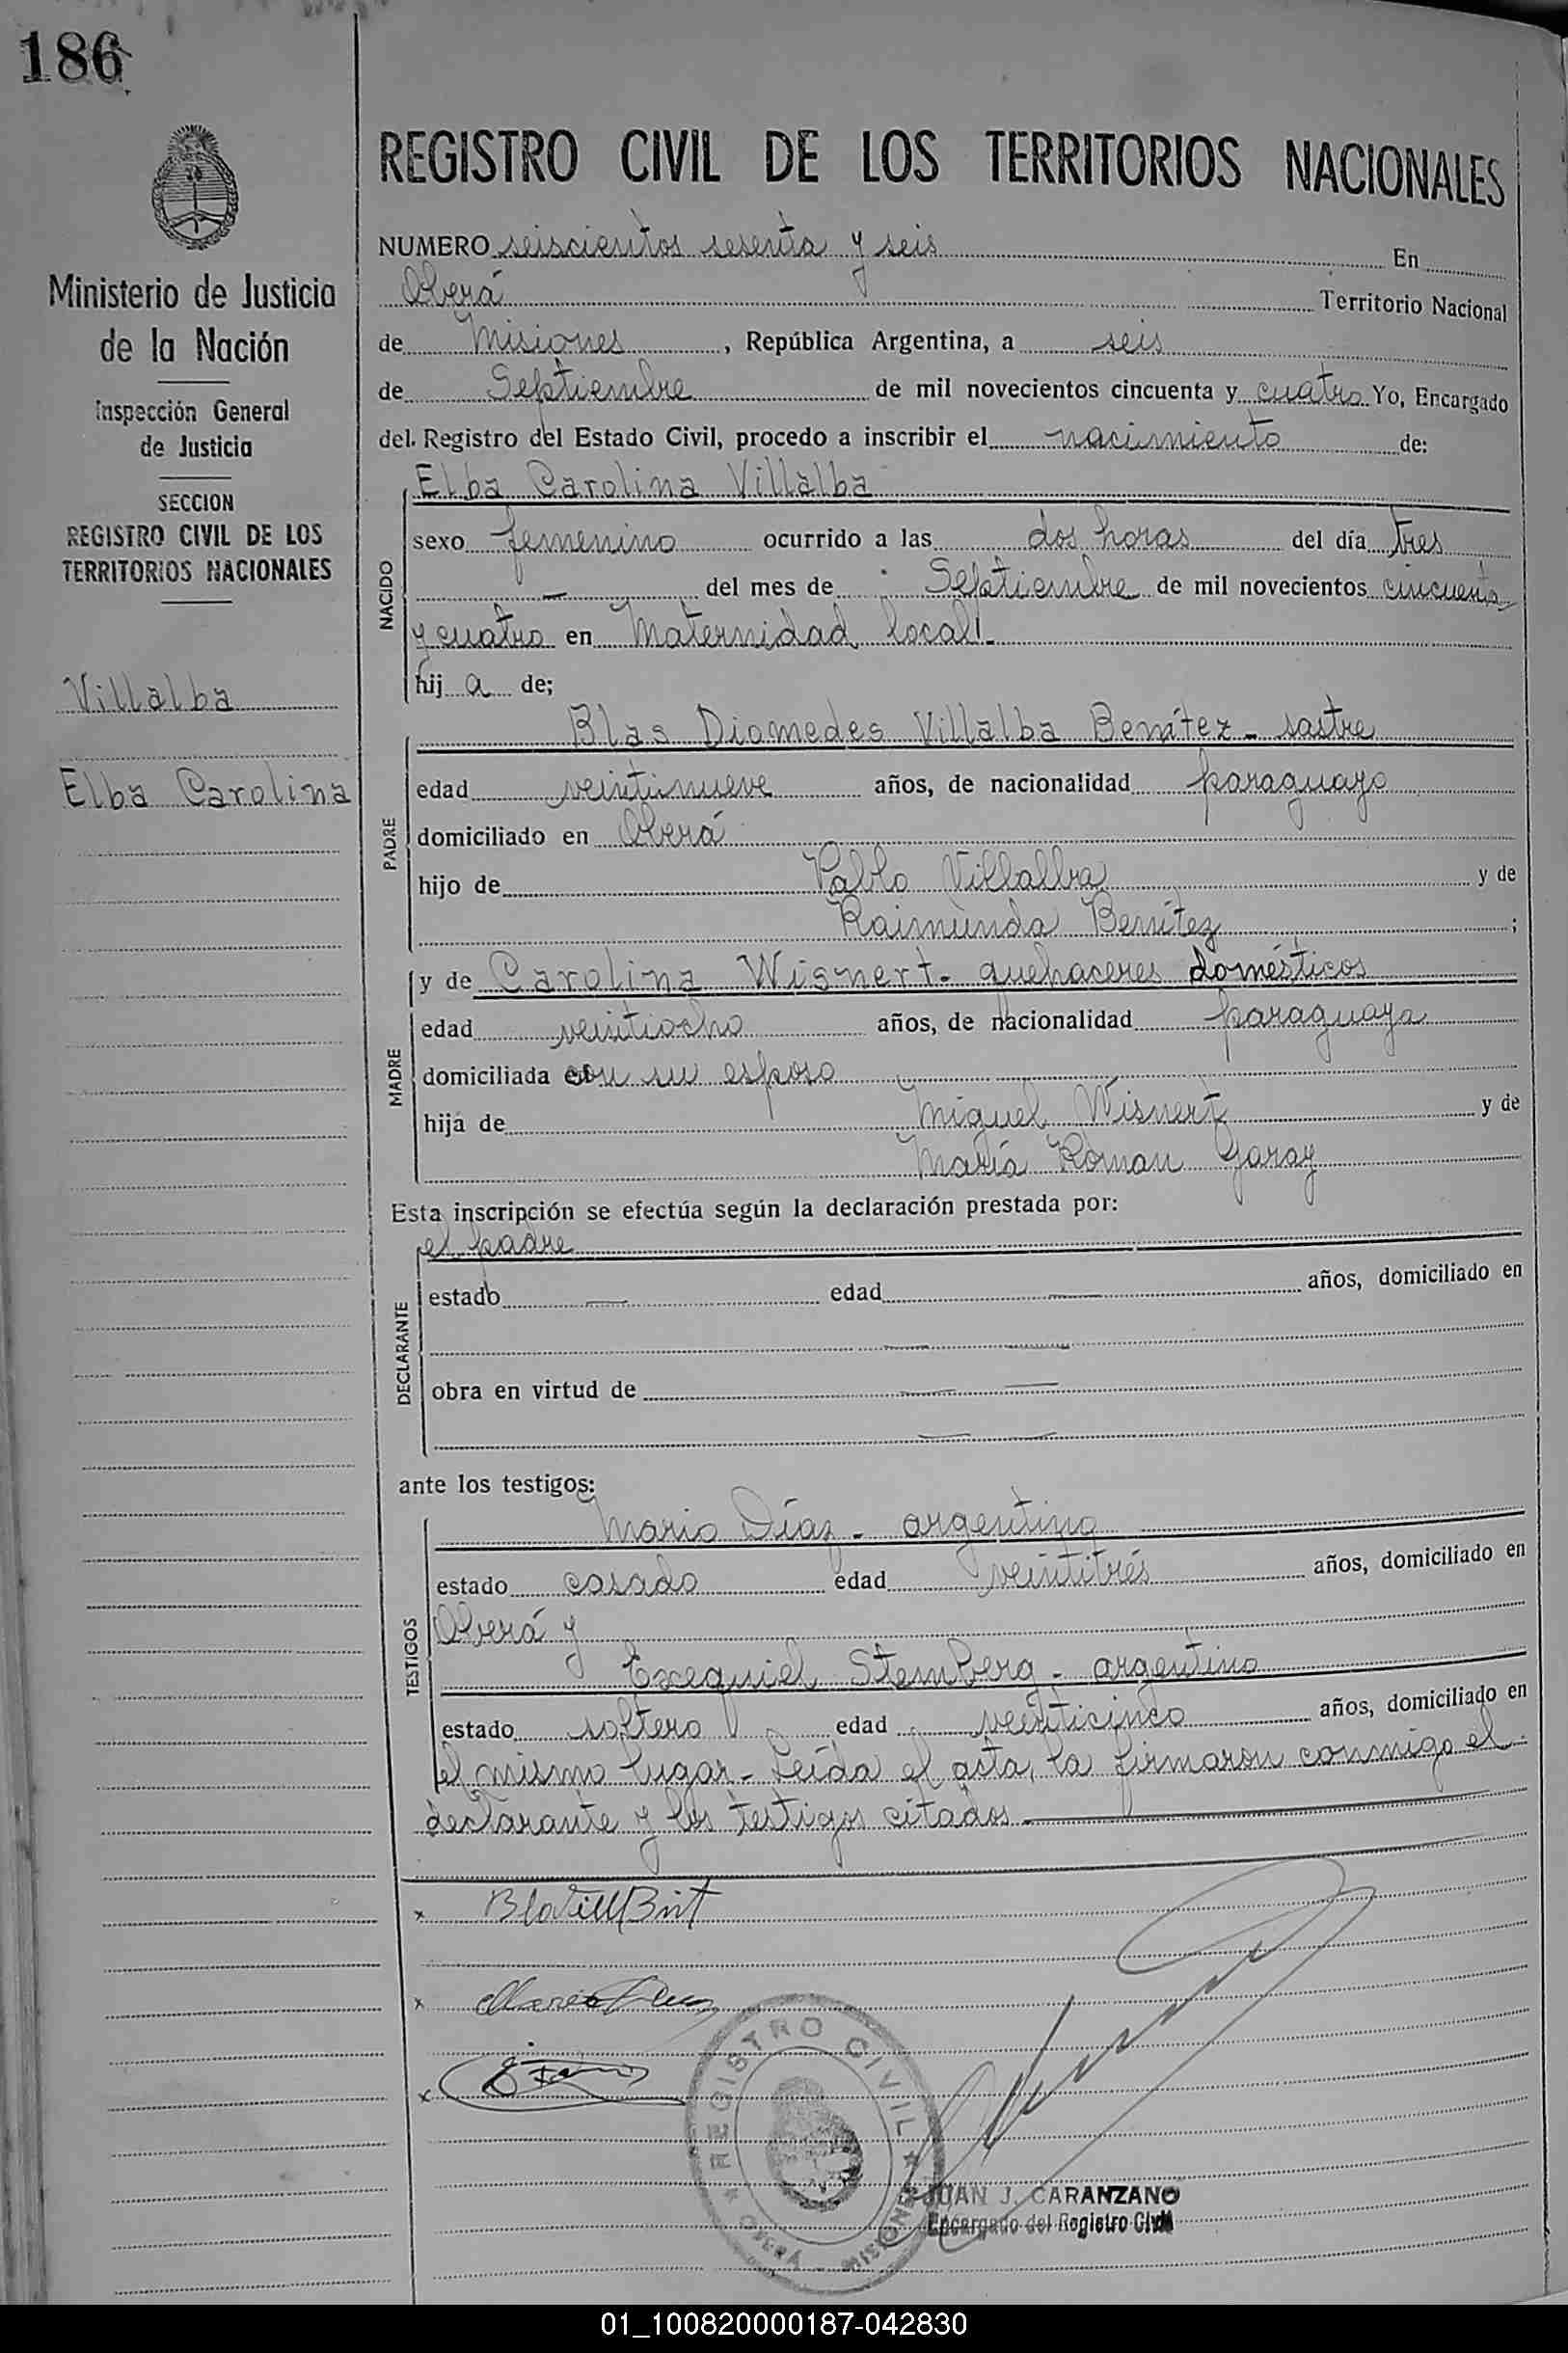 186
Ministerio de Justicia
de la Nación
Inspección General
de Justicia
SECCION
REGISTRO CIVIL DE LOS
TERRITORIOS NACIONALES
Villalba
Elba Carolina
REGISTRO CIVIL DE LOS TERRITORIOS NACIONALES
NUMERO seiscientos sesenta y seis En
Oberá Territorio Nacional
de Misiones, República Argentina, a seis
de Septiembre de mil novecientos cincuenta y cuatro Yo, Encargado
del Registro del Estado Civil, procedo a inscribir el nacimiento de:
NACIDO
Elba Carolina Villalba
sexo femenino ocurrido a las dos horas del día tres
— del mes de Septiembre de mil novecientos cincuenta
y cuatro en Maternidad local.
hij a de;
PADRE
Blas Diomedes Villalba Benítez - sastre
edad veintinueve años, de nacionalidad paraguayo
domiciliado en Oberá
hijo de Pablo Villalba y de
Raimunda Benítez ;
MADRE
y de Carolina Wisnert - quehaceres domésticos
edad veintiocho años, de nacionalidad paraguaya
domiciliada con su esposo
hija de Miguel Wisnert y de
María Roman Garay
Esta inscripción se efectúa según la declaración prestada por:
DECLARANTE
el padre
estado — edad — años, domiciliado en
— —
obra en virtud de — —
— —
ante los testigos:
TESTIGOS
Mario Díaz - argentino
estado casado edad veintitrés años, domiciliado en
Oberá y
Exequiel Stemberg - argentino
estado soltero edad veinticinco años, domiciliado en
el mismo lugar - Leída el acta, la firmaron conmigo el
declarante y los testigos citados
REGISTRO CIVIL
OBERA MISIONES
JUAN J. CARANZANO
Encargado del Registro Civil
01_100820000187-042830